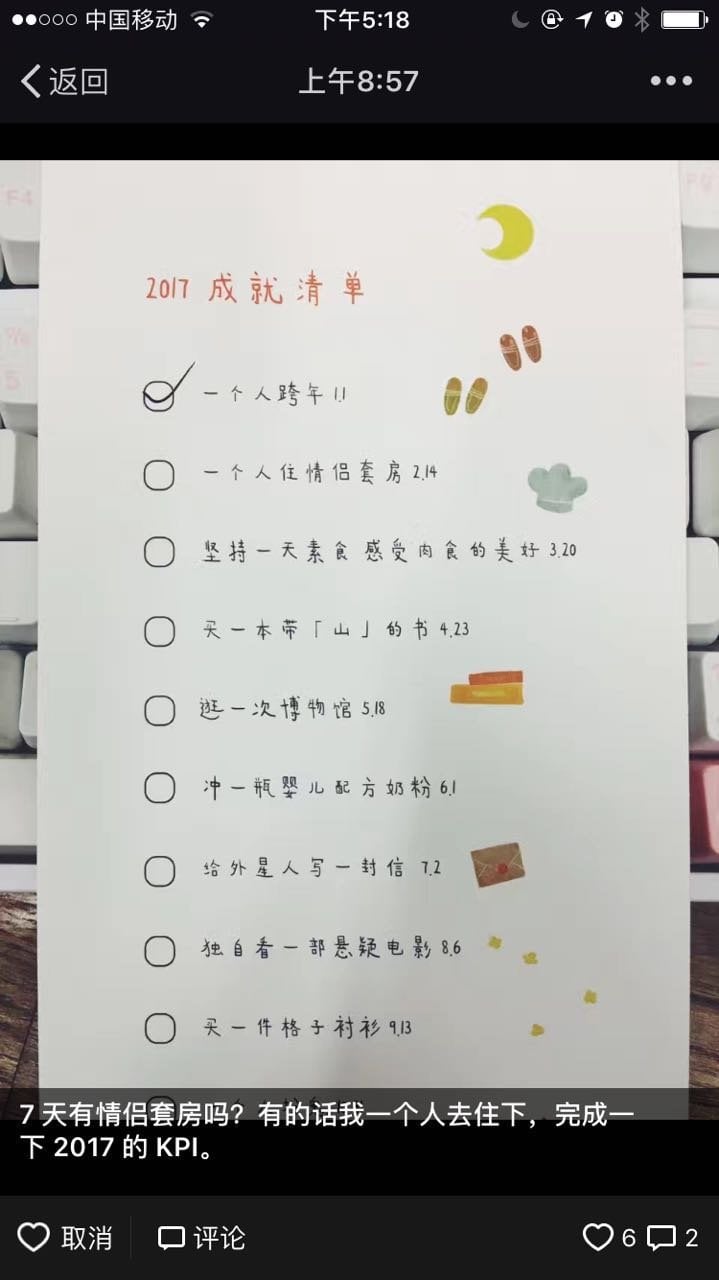 中国移动 下午5:18
返回 上午8:57
2017 成就清单
一个人跨年 1.1
一个人住情侣套房 2.14
坚持一天素食 感受肉食的美好 3.20
买一本带「山」的书 4.23
逛一次博物馆 5.18
冲一瓶婴儿配方奶粉 6.1
给外星人写一封信 7.2
独自看一部悬疑电影 8.6
买一件格子衬衫 9.13
7 天有情侣套房吗？有的话我一个人去住下，完成一
下 2017 的 KPI。
取消 评论 6 2